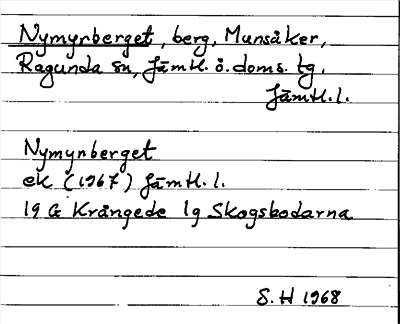 Nymyrberget, berg, Munsåker,
Ragunda sn, Jämtl. ö. doms. tg,
Jämtl. l.
Nymyrberget
ek (1967) Jämtl. l.
19 G Krångede 1g Skogsbodarna
S.H 1968